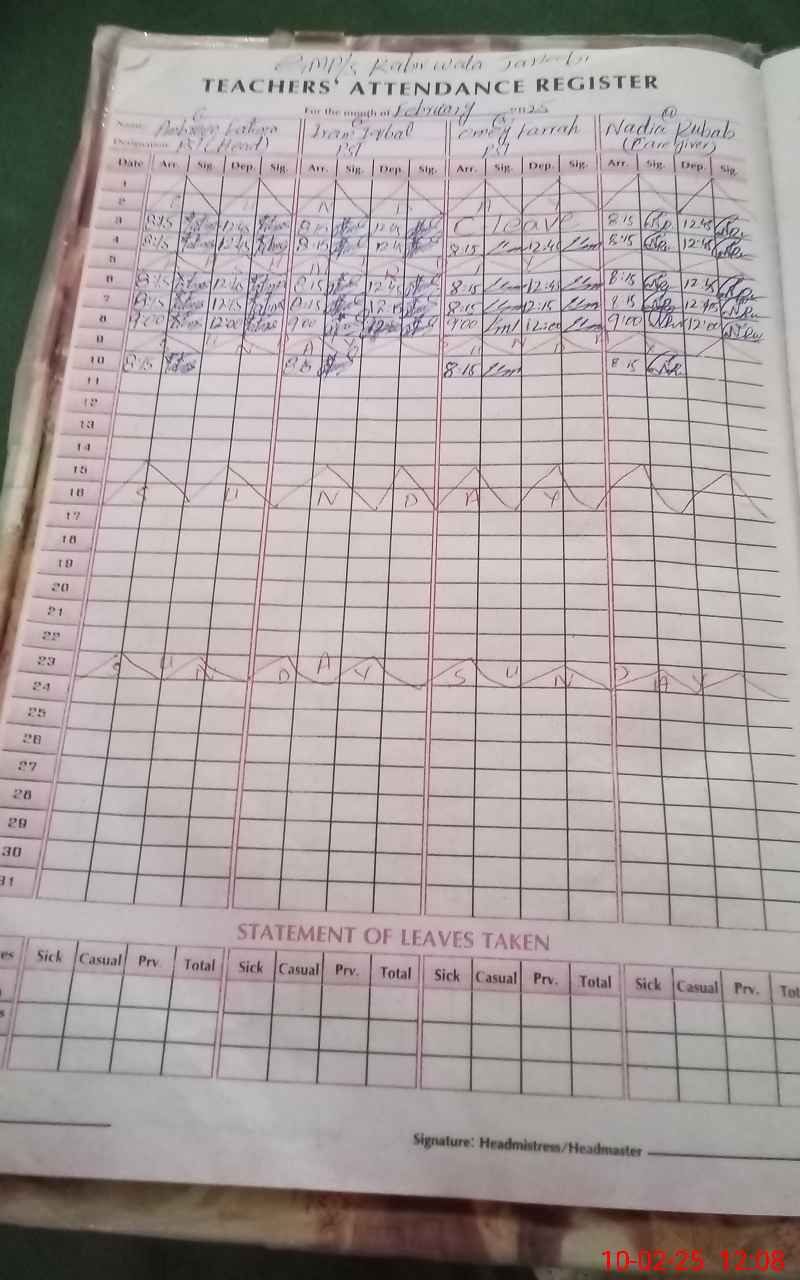 TEACHERS' ATTENDANCE REGISTER
For the month of February 2025
Name: Iram Iqbal Farrah Nadia Rubab
Designation: PST (Head) PST PST (Care giver)
Date Arr. Sig. Dep. Sig. Arr. Sig. Dep. Sig. Arr. Sig. Dep. Sig. Arr. Sig. Dep. Sig.
1
2
3 8:15 12:45 8:15 12:45 C leave 8:15 12:45
4 8:15 12:45 8:15 12:45 8:15 12:45 8:15 12:45
5
6 8:15 12:45 8:15 12:45 8:15 12:45 8:15 12:45
7 8:15 12:15 8:15 12:15 8:15 12:15 8:15
8 9:00 12:00 9:00 12:00 9:00 12:00 9:00 12:00
9 S U N D A Y
10 8:15 8:15 8:15 8:15
11
12
13
14
15
16 S U N D A Y
17
18
19
20
21
22
23 S U N D A Y S U N D A Y
24
25
26
27
28
29
30
31
STATEMENT OF LEAVES TAKEN
Sick Casual Prv. Total Sick Casual Prv. Total Sick Casual Prv. Total Sick Casual Prv.
Signature: Headmistress/Headmaster
10-02-25 12:08